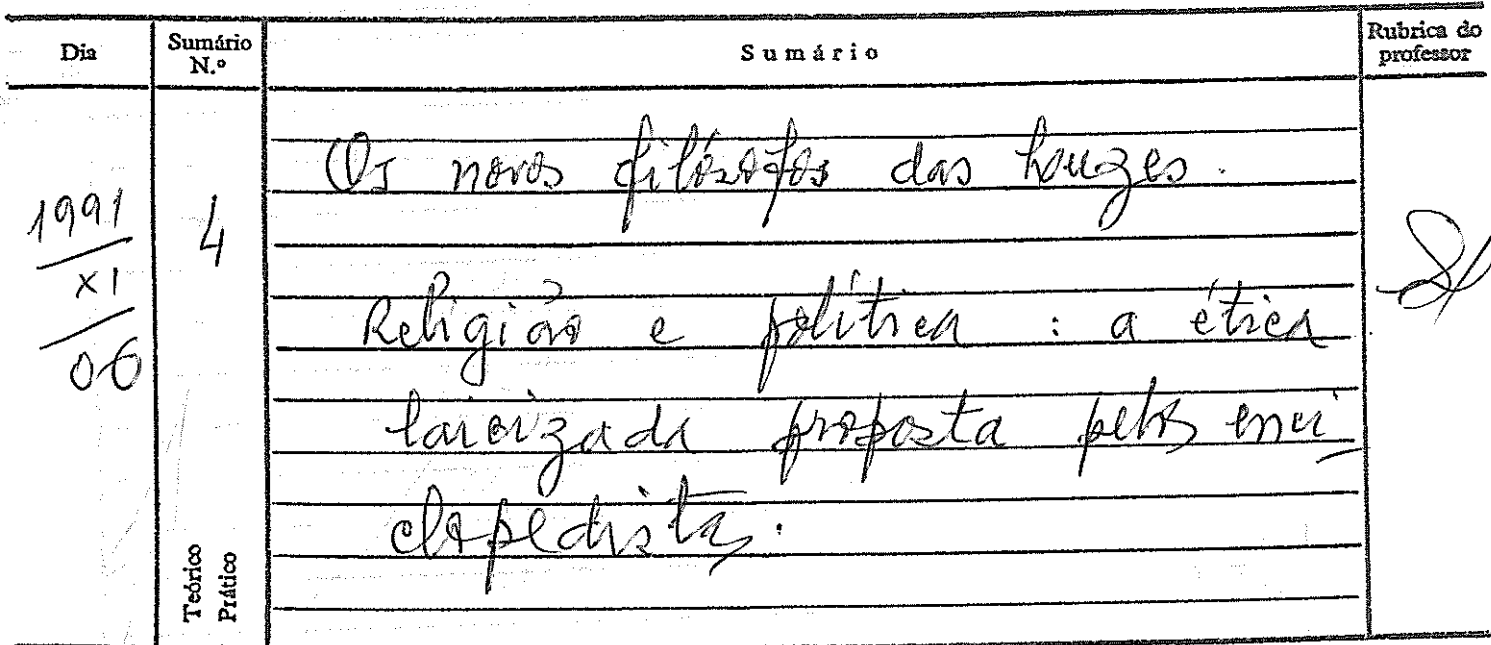 Dia
Sumário N.º
Sumário
Rubrica do professor
1991
XI
06
4
Os novos filósofos das luzes.
Religião e política : a ética
laicizada proposta pelos enci
clopedistas.
Teórico
Prático